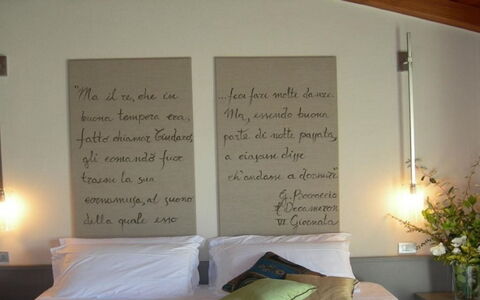 "Ma il re, che in
buona tempera era,
fatto chiamar Tindaro,
gli comandò fuor
traesse la sua
cornamusa, al suono
della quale esso
...fece fare molte danze.
Ma, essendo buona
parte di notte passata,
a ciascun disse
ch'andasse a dormire"
G. Boccaccio
Il Decameron
VI Giornata